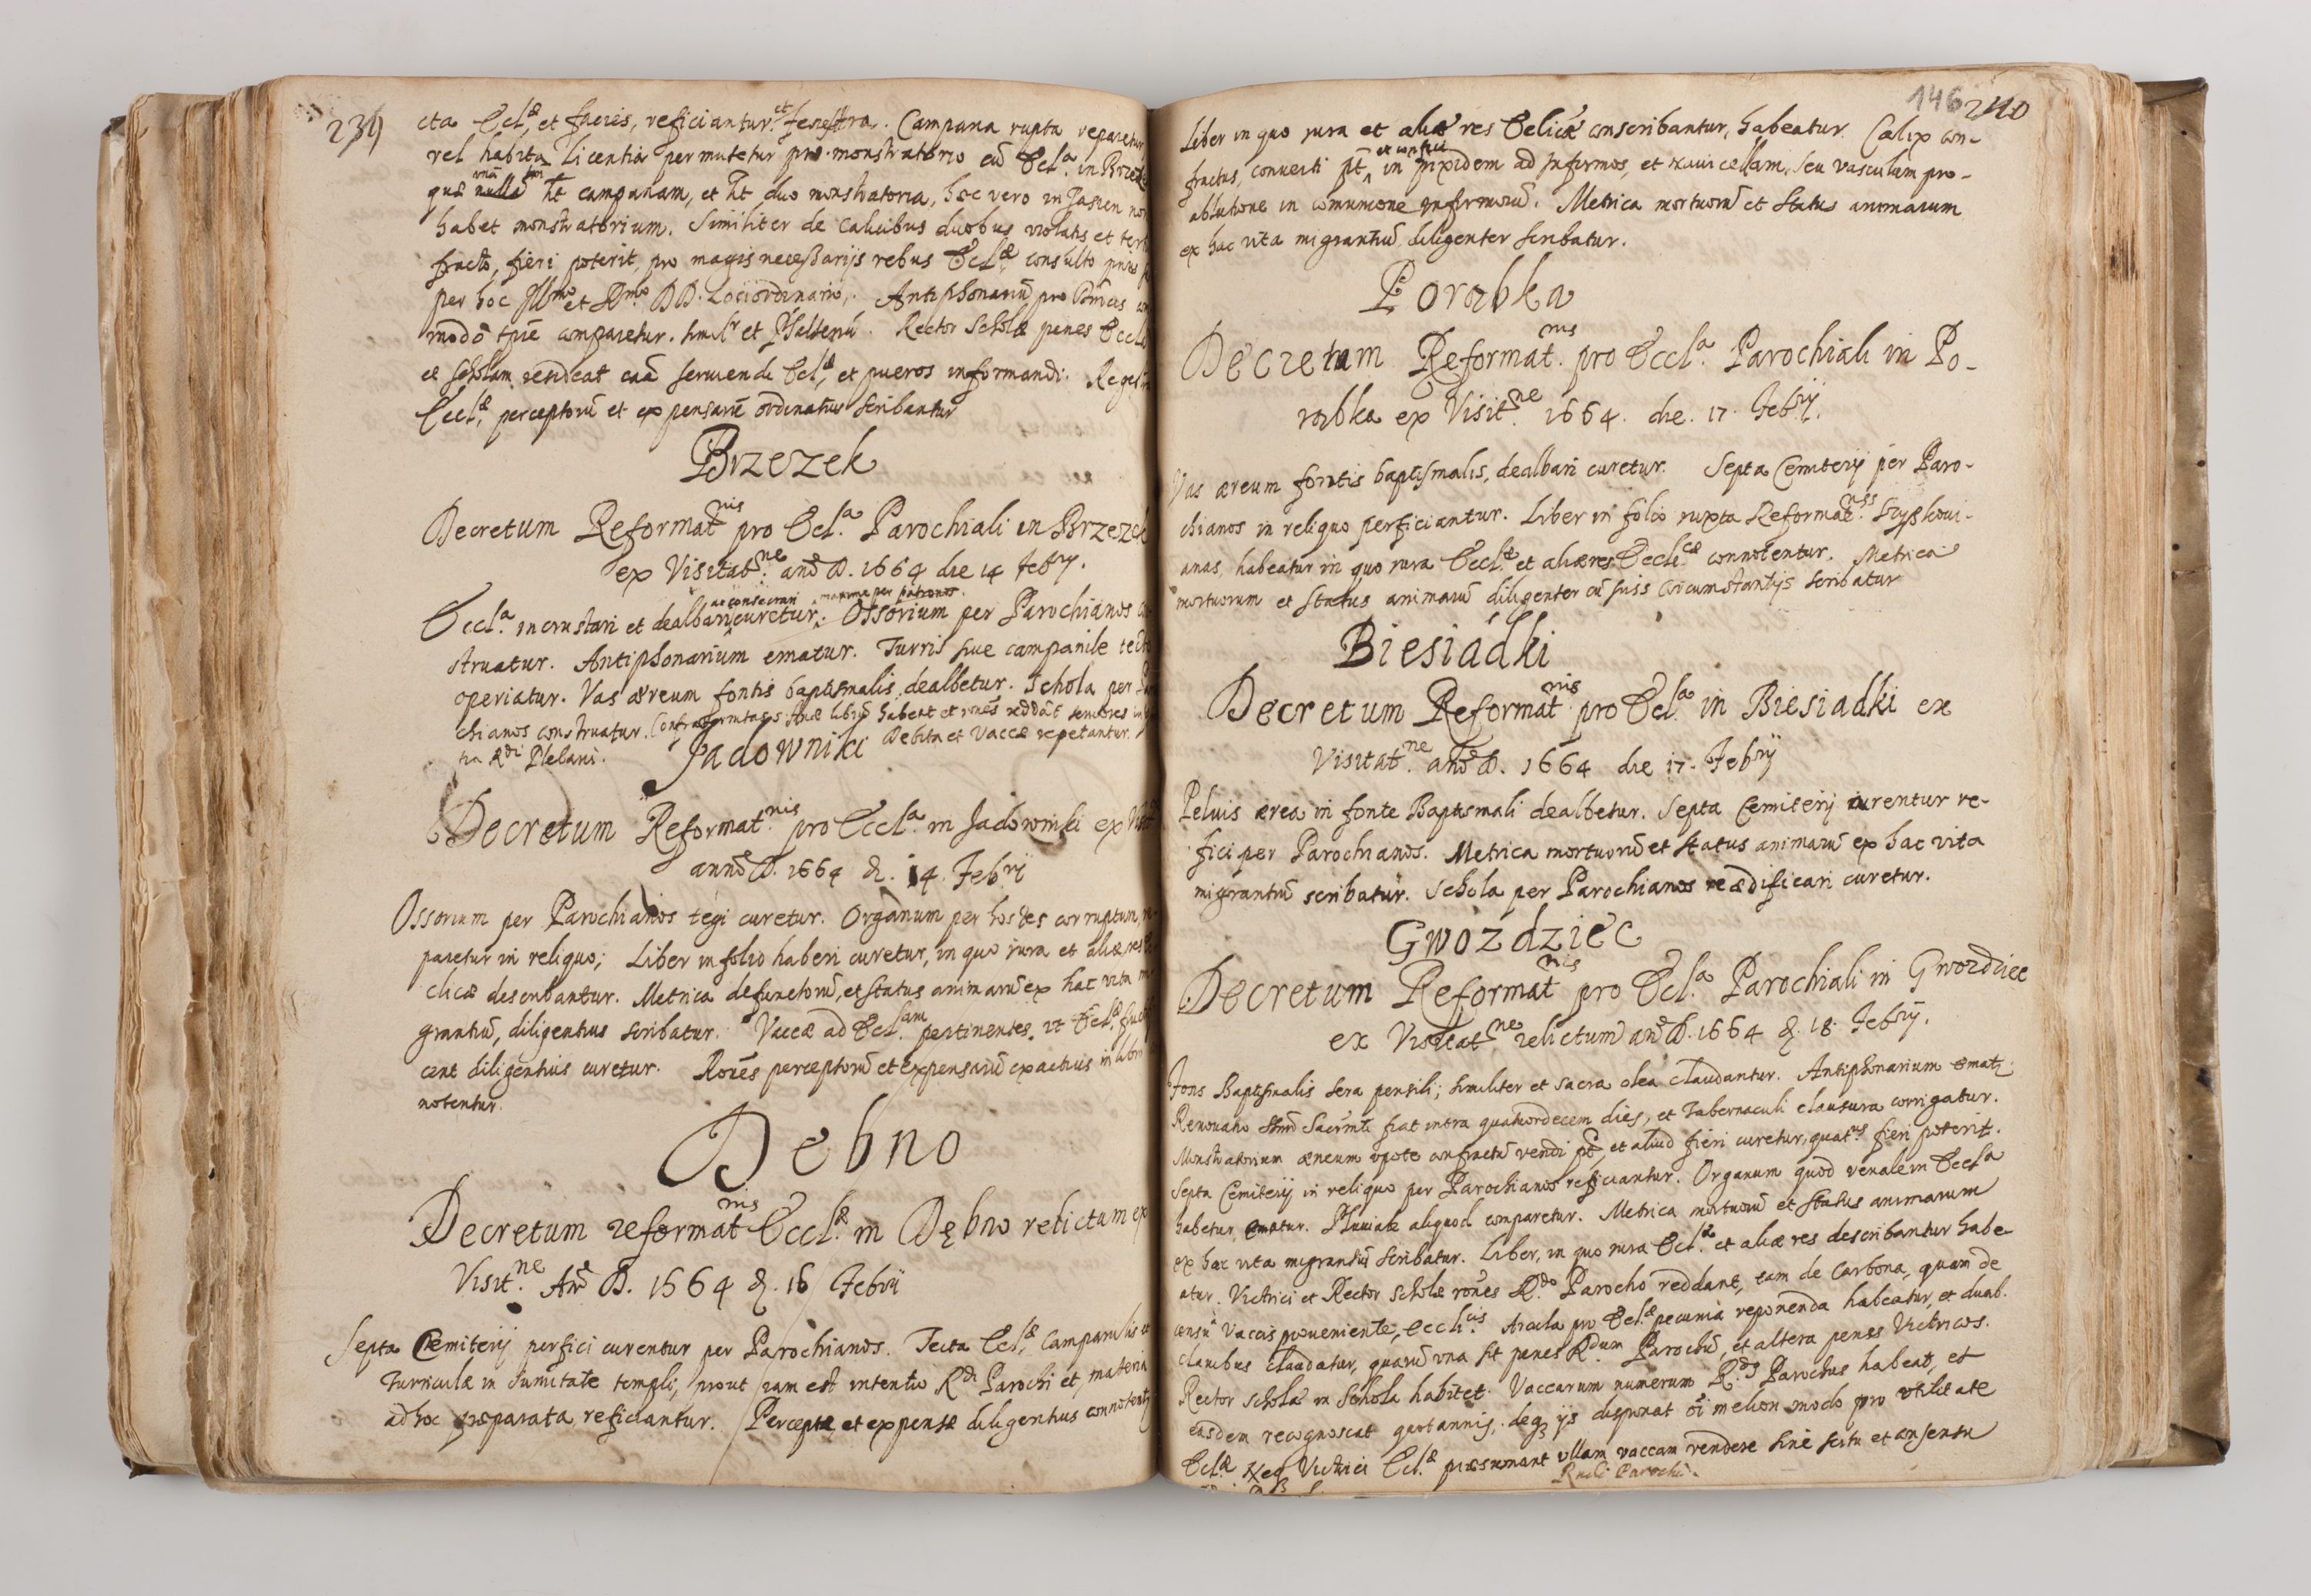 239
cta Eclæ, et facies, reficiantur et fenestra. Campana rupta reparetur
vel habita licentia permutetur pro monstratorio cū Ecla in Brzez
quæ unā nullā ht campanam, et ht duo monstratoria, hæc vero in Jasien non
habet monstratorium. Similiter de calicibus duobus violatis et tert
fracto, fieri poterit, pro magis necessarijs rebus Eclæ, consulto prius
per hoc Illmo et Rmo DD. Lociordinario. Antiphonariū pro
modo tpre comparetur. simlr et Psalteriū. Rector Scholæ penes Eccl
et scholam resideat eaā serviendi Eclæ, et pueros informandi. Regest
Ecclæ perceptorū et expensarū ordinatius scribantur
Brzezek
Decretum Reformatnis pro Ecl.a Parochiali in Brzezek
ex Visitatne anō D. 1664 die 14 Febry.
ac consecrari maxime per patronos.
Eccl.a incrustari et dealbari curetur. Ossorium per Parochianos con
struatur. Antiphonarium ematur. Turris sive campanile tecto
operiatur. Vas æreum fontis baptismalis dealbetur. Schola per Paro
chianos construatur. Confraternitatis Annæ librū habeat et rōnes reddāt seniores in
tia Rdi Plebani. Debita et Vaccæ repetantur.
Jadowniki
Decretum Reformatnis pro Eccl.a in Jadowniki ex Visit
annō D. 1664 d. 14 Febrij
Ossorium per Parochianos tegi curetur. Organum per hostes corruptum, re
paretur in reliquo; Liber in folio haberi curetur, in quo jura et aliæ res
clicæ describantur. Metrica defunctorū, et status animarū ex hac vita mi
grantiū, diligentius scribatur. Vaccæ ad Ecl.am pertinentes, ut Eclæ fructi
cent diligentius curetur. Rōnes perceptorū et expensarū exactius in libro
notentur.
Debno
Decretum reformatnis Ecclæ in Dębno relictum ex
Visitne Anō D. 1664 d. 16 Febrij
Septa Cemiterij perfici curentur per Parochianos. Tecta Eclæ, Campanilis et
Turriculæ in sumitate templi, prout jam est intentio Rdi Parochi et materia
ad hoc præparata, reficiantur. Percepta et expensæ diligentius connotentr
146 240
Liber in quo jura et aliæ res Eclicæ conscribantur, habeatur. Calix con-
fractus, converti pt et confici in pixidem ad infirmos, et navicellam, seu vasculum pro-
ablutione in comunione infirmorū. Metrica mortuorū et status animarum
ex hac vita migrantiū, diligenter scribatur.
Porąbka
Decretum Reformatnis pro Eccl.a Parochiali in Po-
rąbka ex Visitne 1664. die. 17. Febrij.
Vas æreum fontis baptismalis, dealbari curetur. Septa Cemiterij per Paro-
chianos in reliquo perficiantur. Liber in folio juxta Reformatnss Szyszkovi-
anas, habeatur in quo jura Ecclæ et aliæ res Ecclicæ connotentur. Metrica
mortuorum et status animarū diligenter cū suis circumstantijs scribatur
Biesiadki
Decretum Reformatnis pro Ecl.a in Biesiadki ex
Visitatne anō D. 1664 die 17. Febrij
Pelvis ærea in fonte Baptismali dealbetur. Septa Cemiterij curentur re-
fici per Parochianos. Metrica mortuorū et status animarū ex hac vita
migrantiū scribatur. Schola per Parochianos reædificari curetur.
Gwozdziec
Decretum Reformatnis pro Ecl.a Parochiali in Gwozdziec
ex Visitatne relictum anō D. 1664 d. 18. Febrij.
Fons Baptismalis sera pensili; similiter et sacra olea claudantur. Antiphonarium emat.
Renovatio Ssmi Sacrnti fiat intra quatuordecem dies, et Tabernaculi clausura corrigatur.
Monstratorium æneum utpote confractū vendi pt, et aliud fieri curetur, quatns fieri poterit.
Septa Cemiterij in reliquo per Parochianos reficiantur. Organum quod venale in Eccl.a
habetur, ematur. Pluviale aliquod comparetur. Metrica mortuorū et status animarum
ex hac vita migrantiū scribatur. Liber, in quo jura Eclæ et aliæ res describantur habe
atur. Victrici et Rector scholæ rōnes Rdo Parocho reddant, tam de Carbona, quam de
censu a Vaccis proveniente, Ecclicis. Arcula pro Eclæ pecunia reponenda habeatur, et duab.
clavibus claudatur, quarū una sit penes Rdum Parochū, et altera penes Victricos.
Rector scholæ in schola habitet. Vaccarum numerum Rds Parochus habeat, et
easdem recognoscat quotannis, deq ijs disponat oī meliori modo pro utilitate
Eclæ. Neq Victrici Eclæ præsumant ullam vaccam vendere sine scitu et consensu
Rndi Parochi.